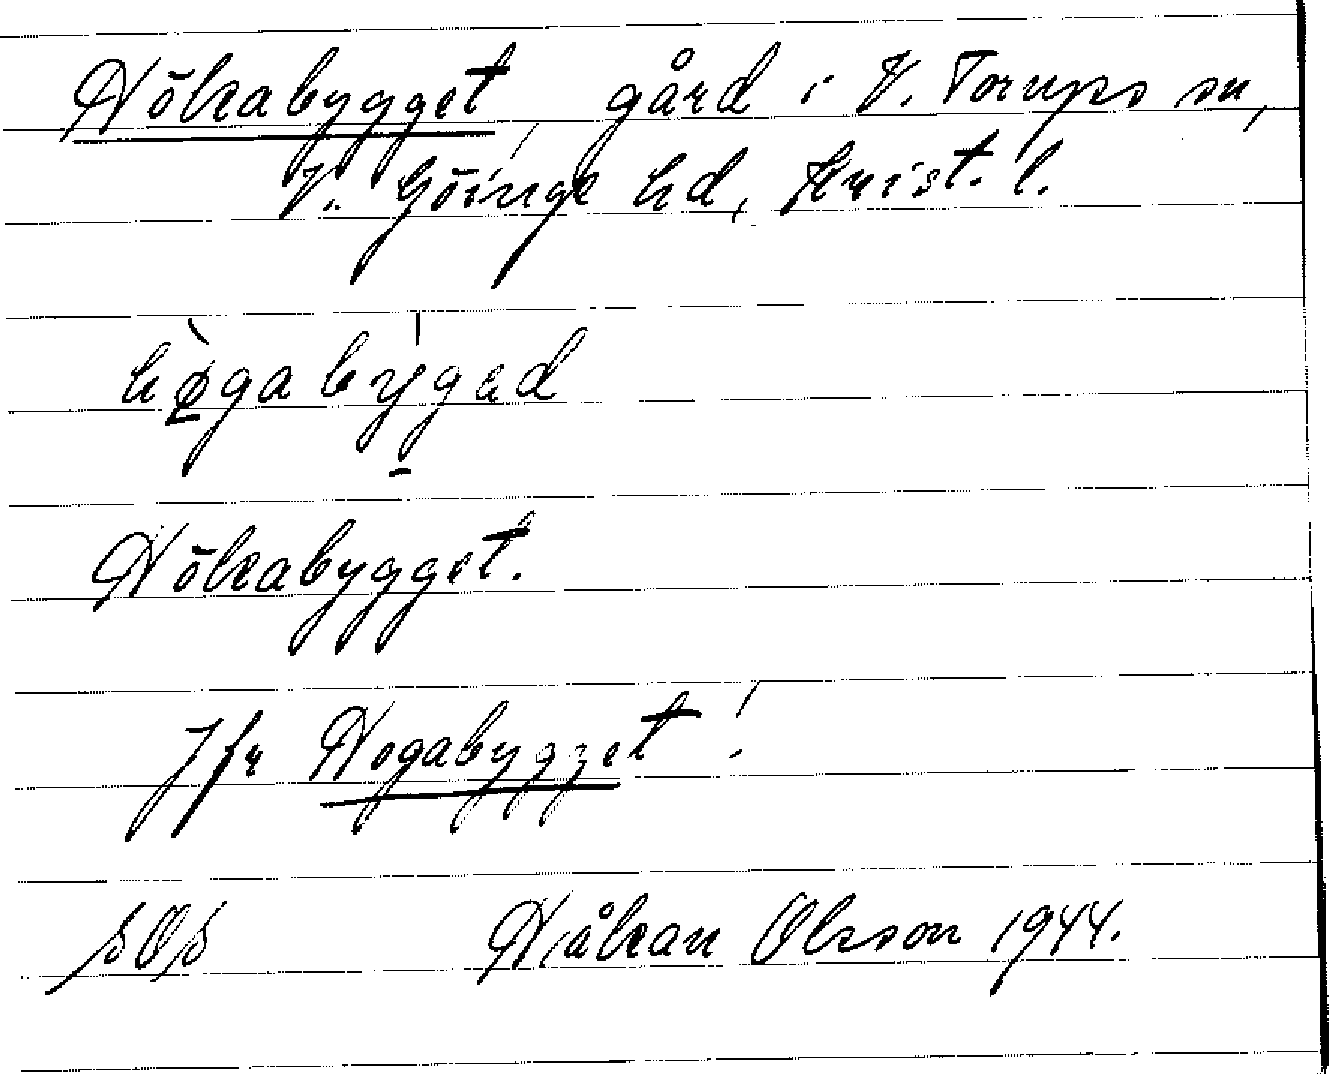 Hökabygget, gård i V. Torups sn,
V. Göinge hd, Krist. l.
hø̀gabýgəd
Hökabygget.
Jfr Hogabygget!
SOS Håkan Olsson 1944.